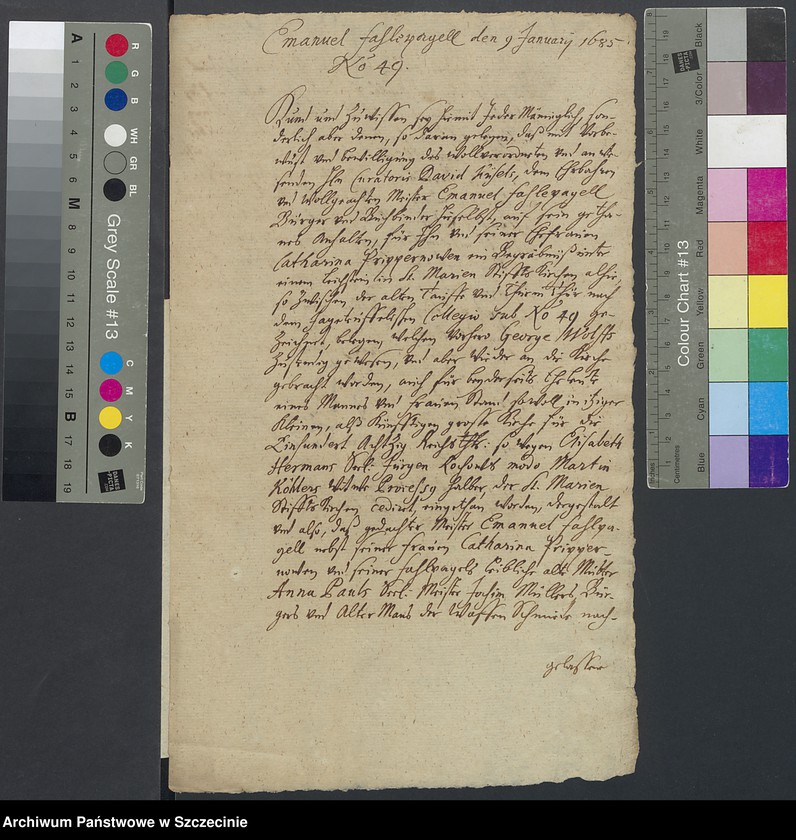 Emanuel Fahlepagell den 9 January 1685.
No 49.
Kund und Zu wissen sey hiemit Jeder Männiglich, son-
derlich aber denen, so daran gelegen, daß mit Vorbe-
wust und bewilligung des Wollverordneten und an We-
senden Hn Curatoris David Küsels, dem Erbahren
und Wollgeachten Meister Emanuel Fahlepagell
Bürger und Buchbinder hieselbst, auf sein getha-
nes Anhalten, für Ihn und seiner Ehefrauen
Catharina Pripernowen ein Begräbniß unter
einem Leichstein in St. Marien Stiffts Kirchen alhie,
so Zwischen der alten Tauffe und Thurm Thür nach
dem Collegio sub No 49 ge-
Zeichnet, belegen, welches vorhero George Wolffs
Zustendig gewesen, und aber wieder an die Kirche
gebracht worden, auch für beyderseits Eheleute
eines Mannes und Frauen Stand sowoll in itziger
kleinen, alß künfftigen grosse Kirche für die
Einhundert Achtzig Reichsthl: so wegen Elisabeth
Hermans Seel: Jürgen modo Martin
Köhlers Witwe halber, der St. Marien
Stiffts Kirchen cediret, eingethan worden, dergestalt
und also, daß gedachter Meister Emanuel Fahlpa-
gell nebst seiner Frauen Catharina Pripper-
nowen und seiner Fahlpagels leibliche alte Mutter
Anna Pauls Seel: Meister Jochim Müllers Bür-
gers und Alter Mans der Waffen Schmiede nach-
gelassene